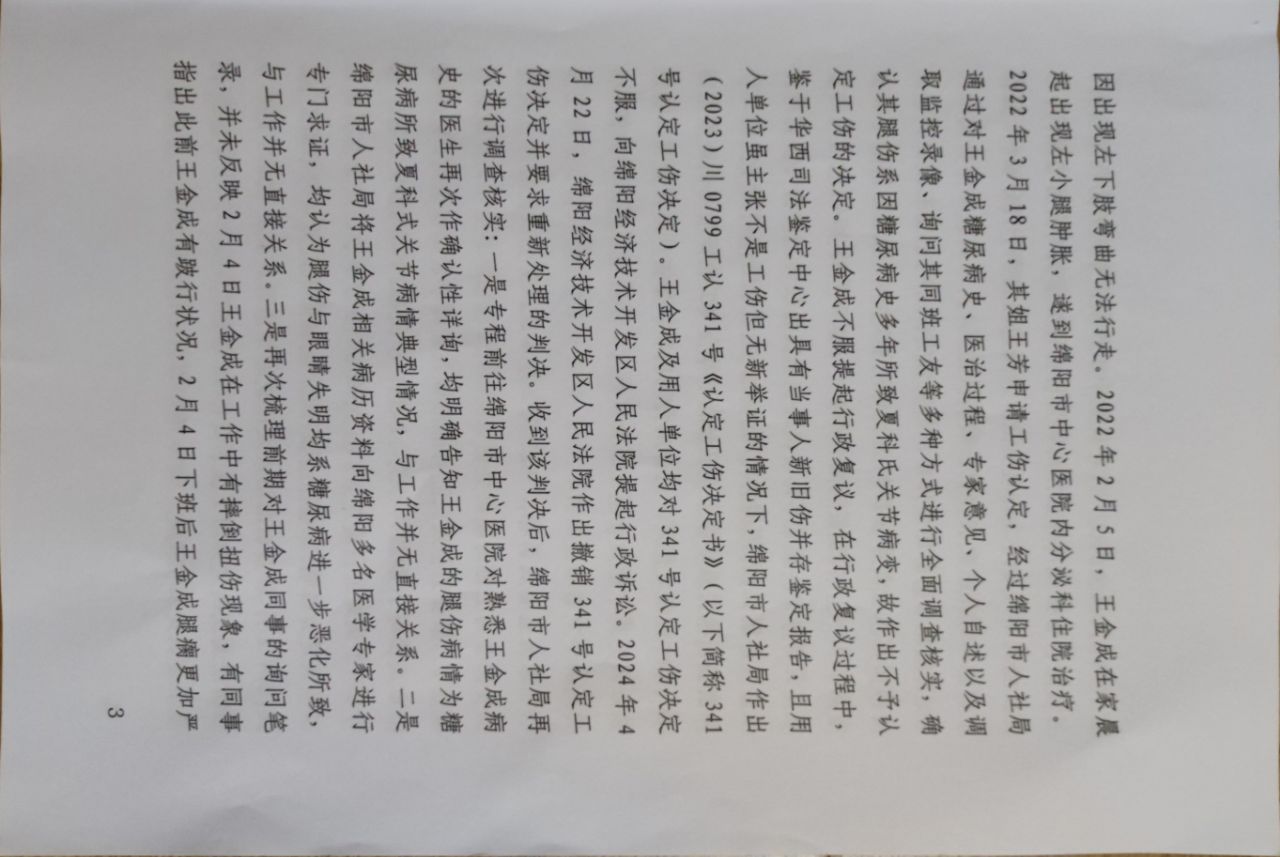 因出现左下肢弯曲无法行走。2022 年 2 月 5 日，王金成在家晨
起出现左小腿肿胀，遂到绵阳市中心医院内分泌科住院治疗。
2022 年 3 月 18 日，其姐王芳申请工伤认定，经过绵阳市人社局
通过对王金成糖尿病史、医治过程、专家意见、个人自述以及调
取监控录像、询问其同班工友等多种方式进行全面调查核实，确
认其腿伤系因糖尿病史多年所致夏科氏关节病变，故作出不予认
定工伤的决定。王金成不服提起行政复议，在行政复议过程中，
鉴于华西司法鉴定中心出具有当事人新旧伤并存鉴定报告，且用
人单位虽主张不是工伤但无新举证的情况下，绵阳市人社局作出
（2023）川 0799 工认 341 号《认定工伤决定书》（以下简称 341
号认定工伤决定）。王金成及用人单位均对 341 号认定工伤决定
不服，向绵阳经济技术开发区人民法院提起行政诉讼。2024 年 4
月 22 日，绵阳经济技术开发区人民法院作出撤销 341 号认定工
伤决定并要求重新处理的判决。收到该判决后，绵阳市人社局再
次进行调查核实：一是专程前往绵阳市中心医院对熟悉王金成病
史的医生再次作确认性详询，均明确告知王金成的腿伤病情为糖
尿病所致夏科式关节病情典型情况，与工作并无直接关系。二是
绵阳市人社局将王金成相关病历资料向绵阳多名医学专家进行
专门求证，均认为腿伤与眼睛失明均系糖尿病进一步恶化所致，
与工作并无直接关系。三是再次梳理前期对王金成同事的询问笔
录，并未反映 2 月 4 日王金成在工作中有摔倒扭伤现象，有同事
指出此前王金成有跛行状况，2 月 4 日下班后王金成腿瘸更加严
3